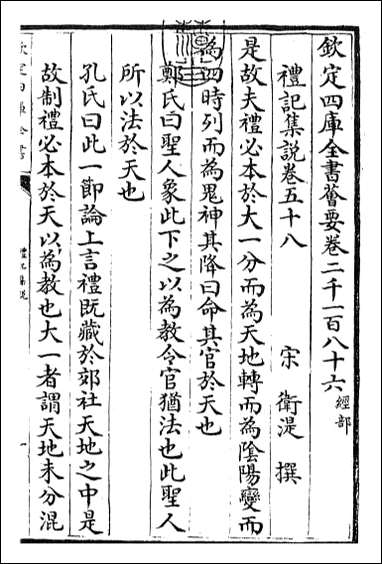 欽定四庫全書薈要卷二千一百八十六 經部
禮記集説卷五十八
宋 衛湜 撰
是故夫禮必本於大一分而為天地轉而為隂陽變而
為四時列而為鬼神其降曰命其官於天也
鄭氏曰聖人象此下之以為教令官猶法也此聖人
所以法於天也
孔氏曰此一節論上言禮既藏於郊社天地之中是
故制禮必本於天以為教也大一者謂天地未分混